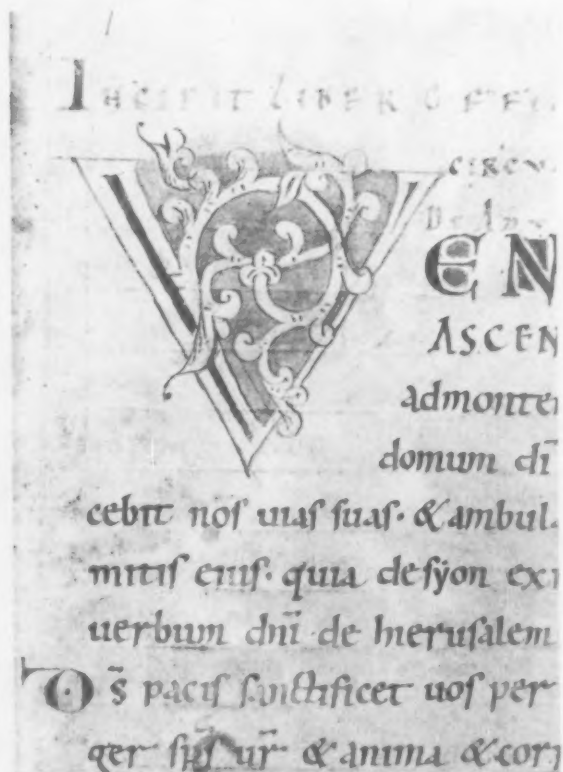 INCIPIT LIBER OFFI
CIRCU
De Adu
VEN
ASCEN
ad monte
domum dī
cebit nos uias suas· & ambul
mitis eius· quia de syon ex
uerbum dnī de hierusalem
Ds̄ pacis sanctificet uos per
ger sps̄ ur̄ & anima & corp